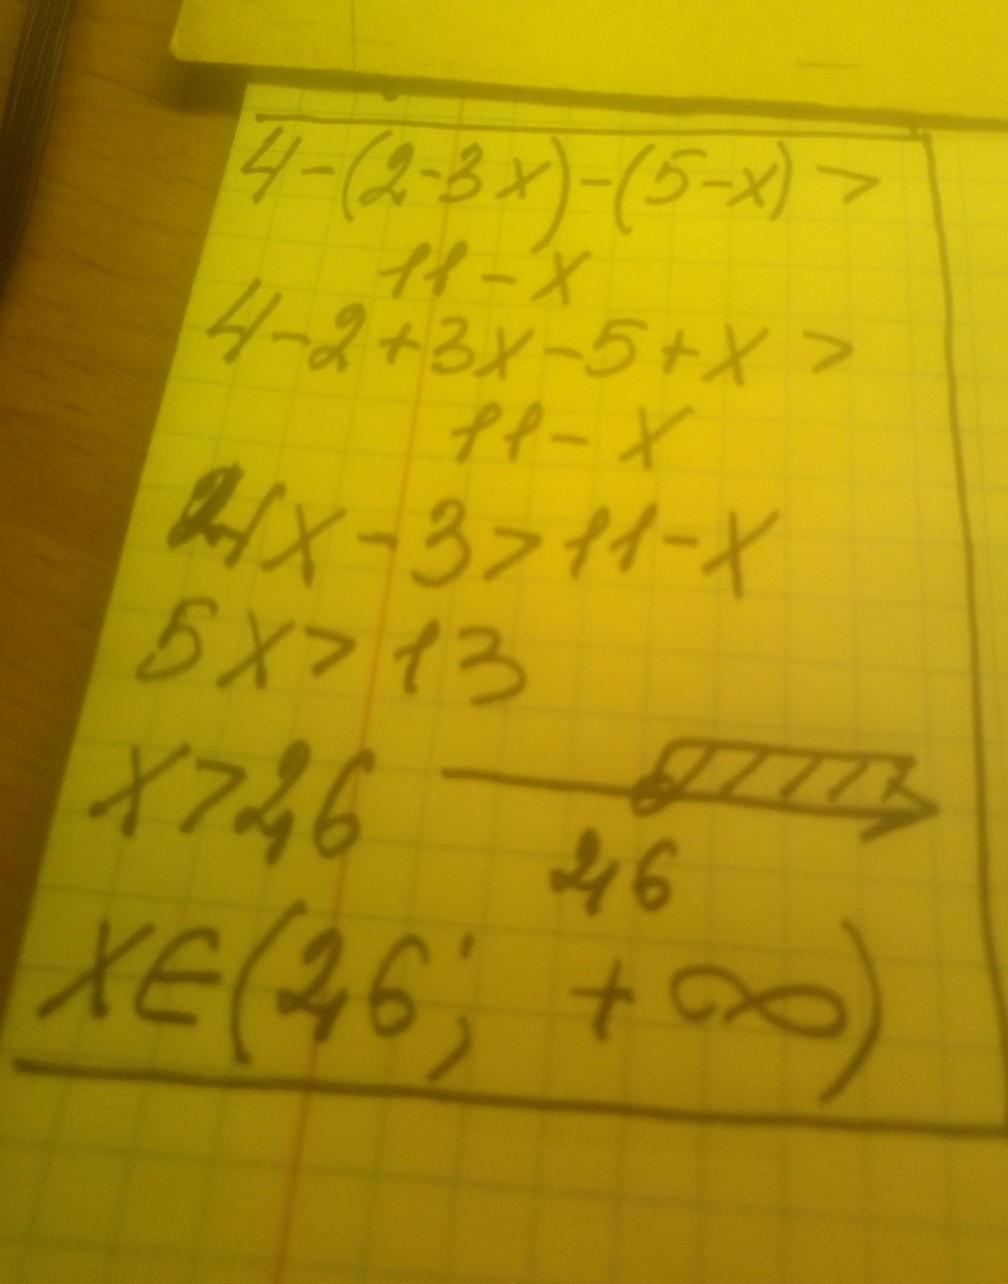 4-(2-3x)-(5-x)>
11-x
4-2+3x-5+x>
11-x
4x-3>11-x
5x>13
x>2,6
2,6
x∈(2,6; +∞)